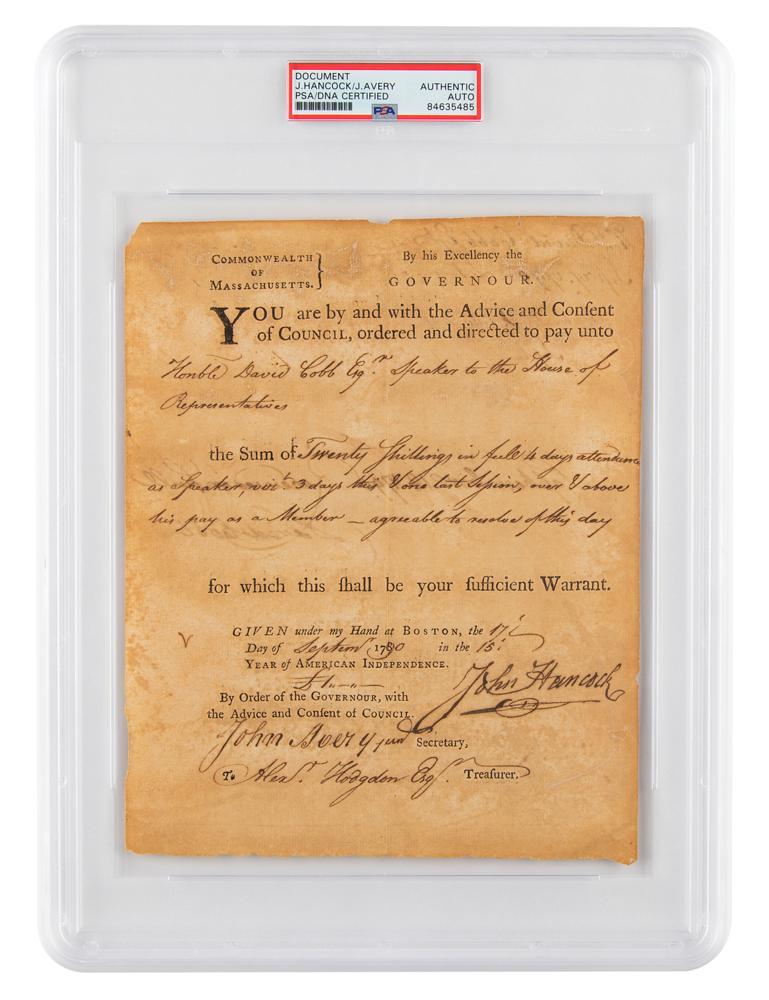 DOCUMENT
J.HANCOCK/J.AVERY AUTHENTIC
PSA/DNA CERTIFIED AUTO
PSA 84635485
COMMONWEALTH By his Excellency the
OF
MASSACHUSETTS. } GOVERNOUR.
YOU are by and with the Advice and Conſent
of COUNCIL, ordered and directed to pay unto
Honble David Cobb Esqr. Speaker to the House of
Representatives
the Sum of Twenty Shillings in full 4 days attendance
as Speaker, vizt. 3 days this & one last Session, over & above
his pay as a Member — agreeable to resolve of this day
for which this ſhall be your ſufficient Warrant.
GIVEN under my Hand at BOSTON, the 17th
Day of Septemr. 1790 in the 15th
YEAR of AMERICAN INDEPENDENCE.
By Order of the GOVERNOUR, with John Hancock
the Advice and Conſent of COUNCIL.
John Avery junr Secretary,
To Alexr. Hodgdon Esqr. Treaſurer.